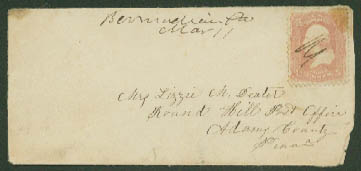 Bermudian Pa
Mar 11
Mrs Lizzie M. Deator
Round Hill Post Office
Adams County
Penna